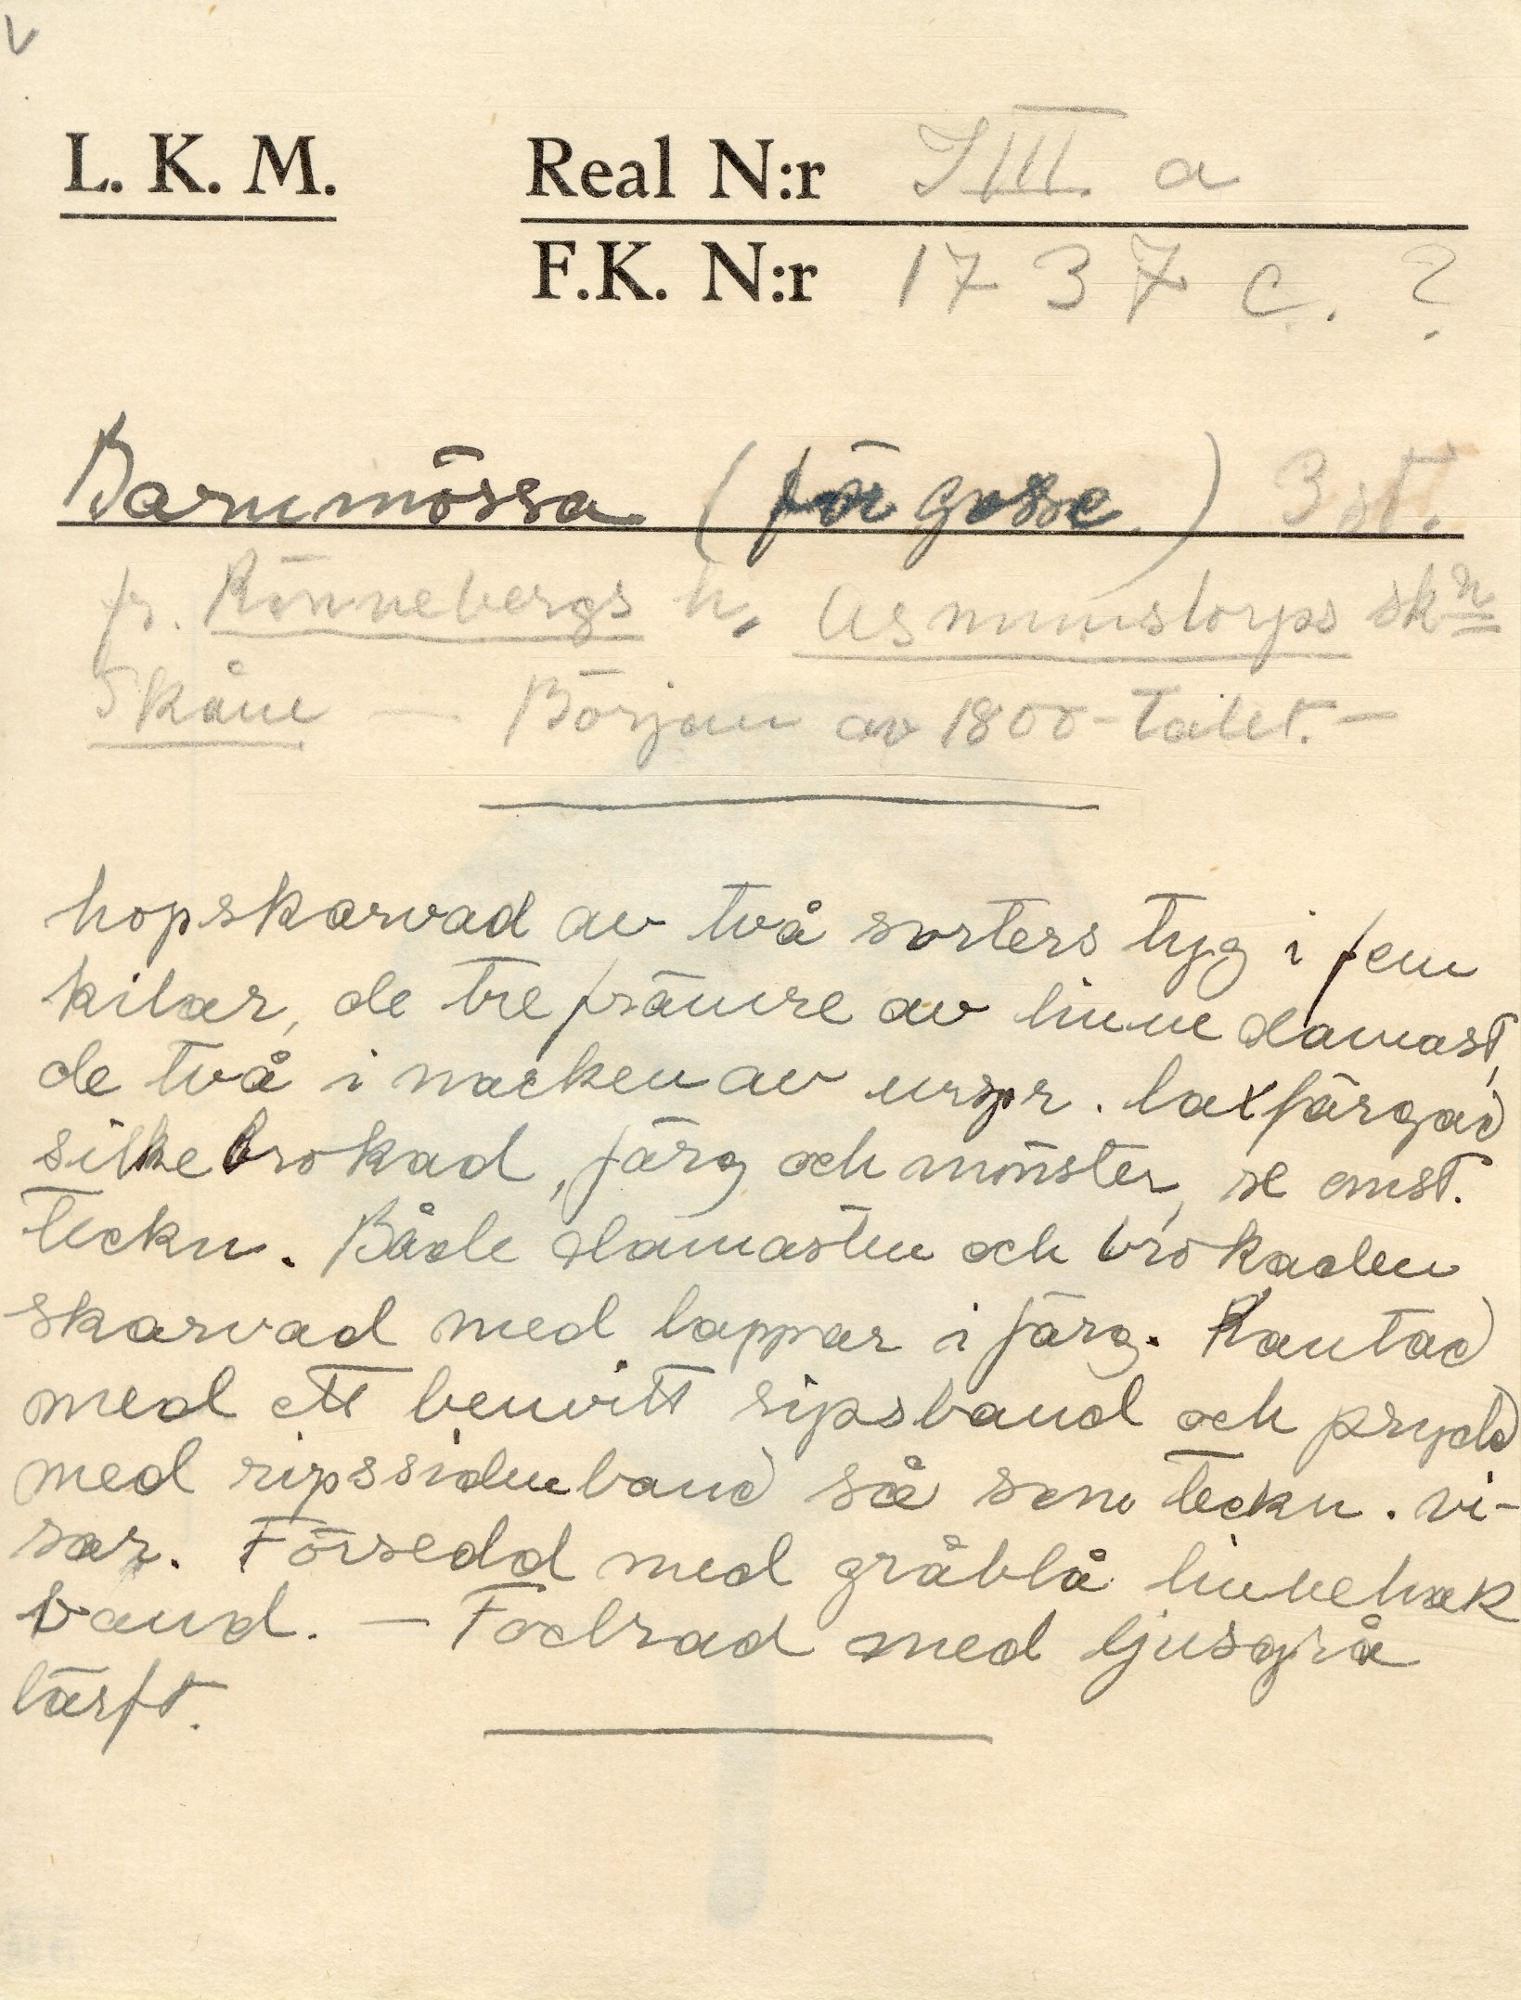 L. K. M. Real N:r VIII. a
F.K. N:r 1737 c. ?
Barnmössa (för gosse) 3 st.
fr. Rönnebergs h. Asmunstorps skn
Skåne — Början av 1800-talet. —
hopskarvad av två sorters tyg i fem
kilar, de tre främre av linnedamast,
de två i nacken av urspr. laxfärgad
silkebrokad, färg och mönster, se omst.
teckn. Både damasten och brokaden
skarvad med lappar i färg. Kantad
med ett benvitt ripsband och prydd
med ripssidenband så som teckn. vi-
sar. Försedd med gråblå linnehak
band. — Fodrad med ljusgrå
lärft.